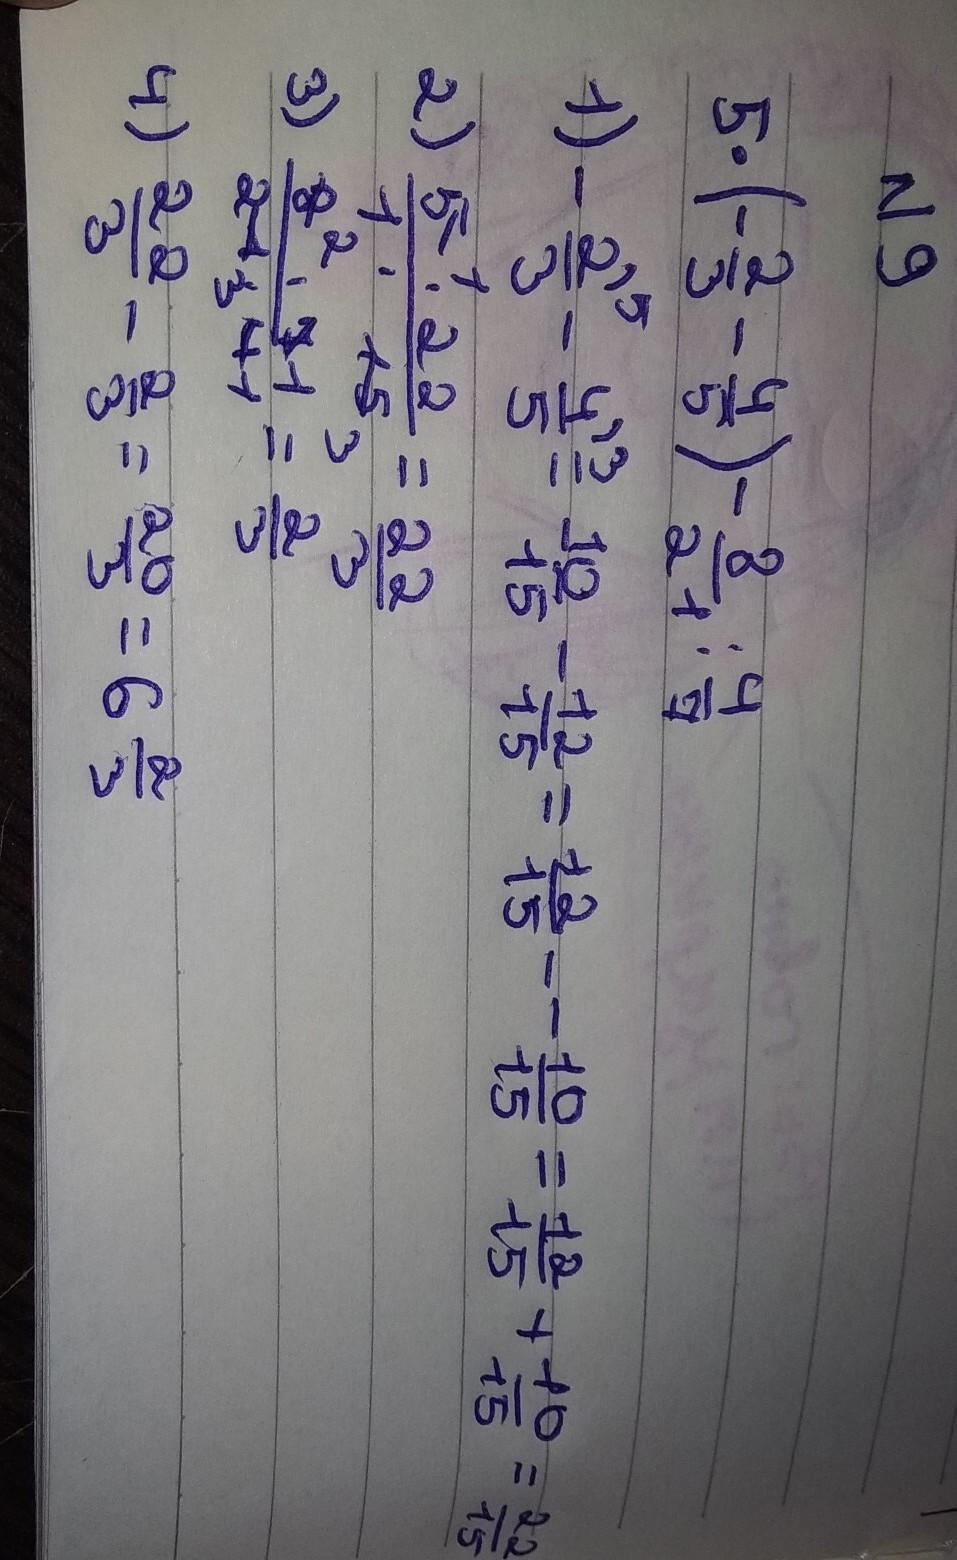 N 9
5·(-2/3 - 4/5) - 8/21 : 4/7
1) -2/3^5 - 4/5^3 = 10/15 - 12/15 = 12/15 - - 10/15 = 12/15 + 10/15 = 22/15
2) 5^1 · 22 / 1 · 15 3 = 22/3
3) 8^2 · 7 1 / 21 3 4 1 = 2/3
4) 22/3 - 2/3 = 20/3 = 6 2/3